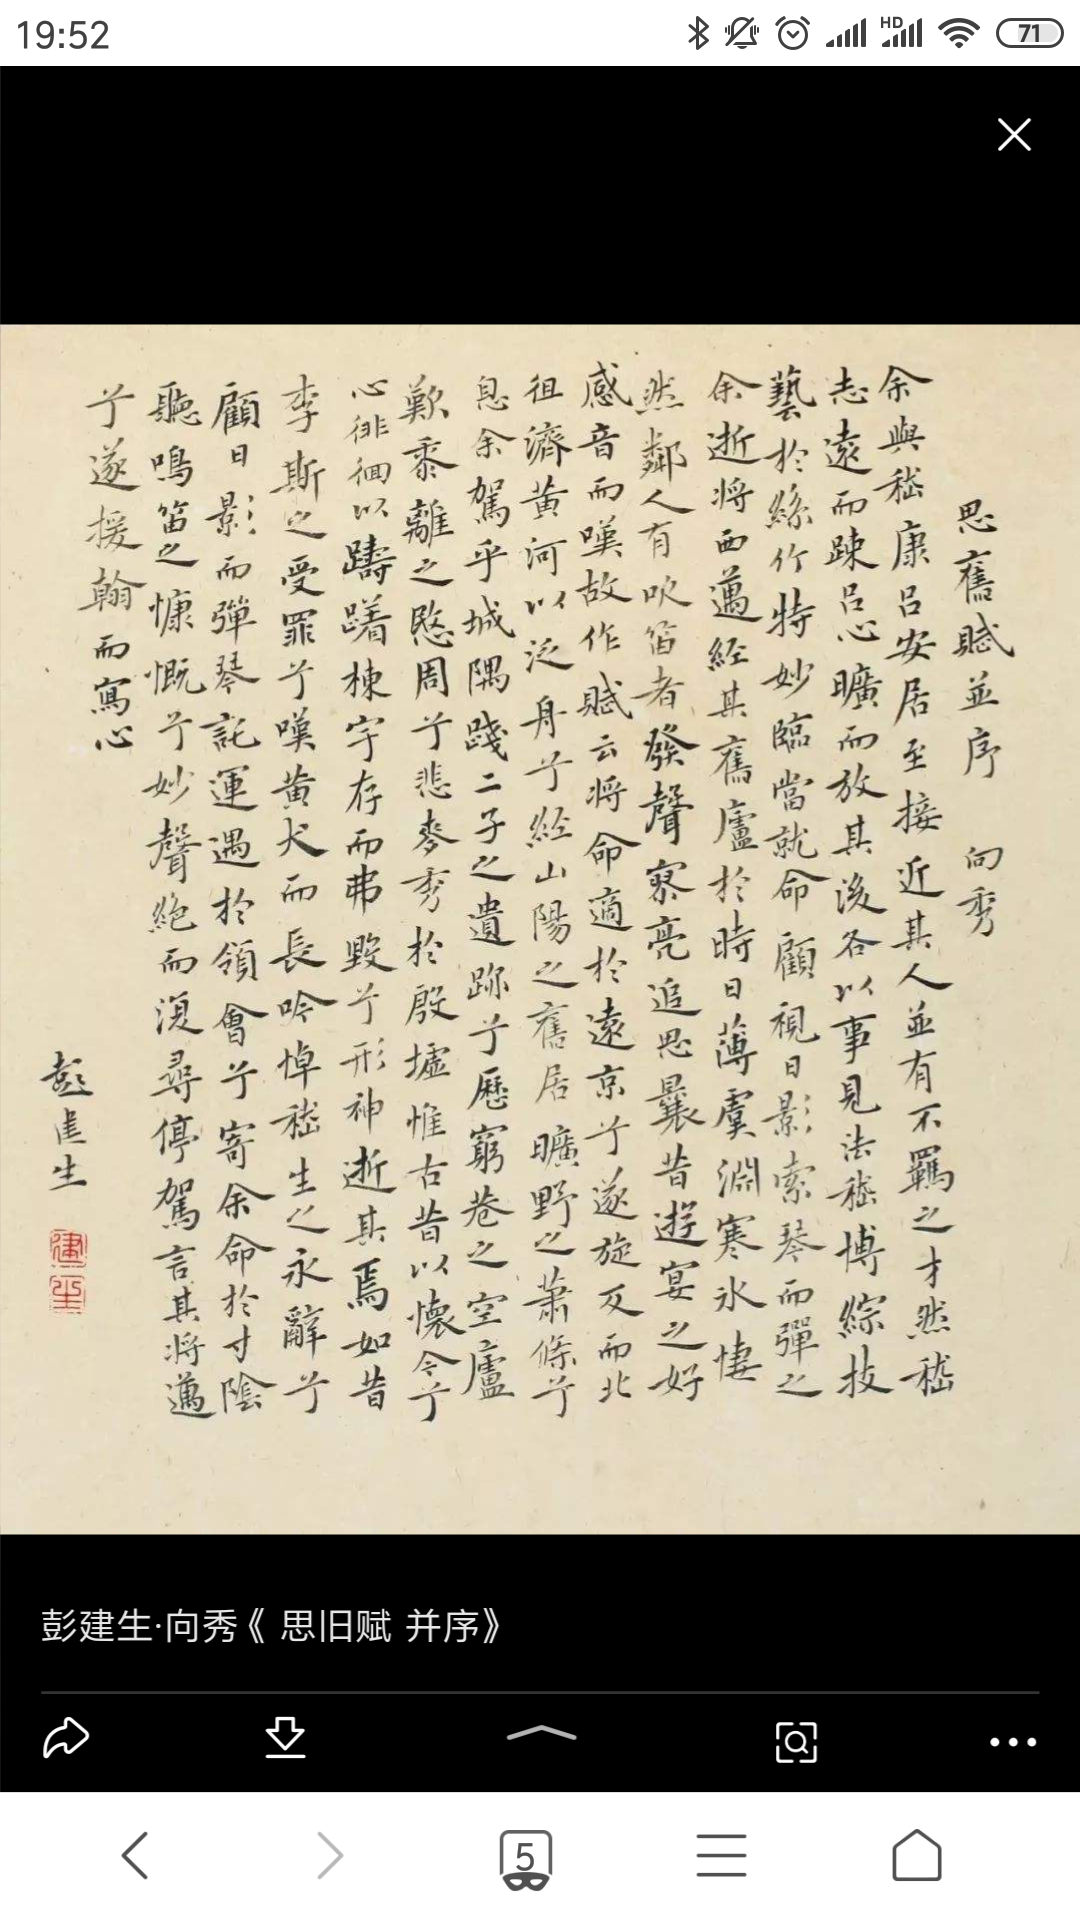 19:52
HD
71
思舊賦並序 向秀
余與嵇康呂安居至接近其人並有不羈之才然嵇
志遠而踈呂心曠而放其後各以事見法嵇博綜技
藝於絲竹特妙臨當就命顧視日影索琴而彈之
余逝將西邁經其舊廬於時日薄虞淵寒冰悽
然鄰人有吹笛者發聲寥亮追思曩昔遊宴之好
感音而嘆故作賦云將命適於遠京兮遂旋反而北
徂濟黃河以泛舟兮經山陽之舊居曠野之蕭條兮
息余駕乎城隅踐二子之遺跡兮歷窮巷之空廬
歎黍離之愍周兮悲麥秀於殷墟惟古昔以懷今兮
心徘徊以躊躇棟宇存而弗毀兮形神逝其焉如昔
李斯之受罪兮嘆黃犬而長吟悼嵇生之永辭兮
顧日影而彈琴託運遇於領會兮寄余命於寸陰
聽鳴笛之慷慨兮妙聲絕而復尋停駕言其將邁
兮遂援翰而寫心
彭建生
建生
彭建生·向秀《 思旧赋 并序》
5